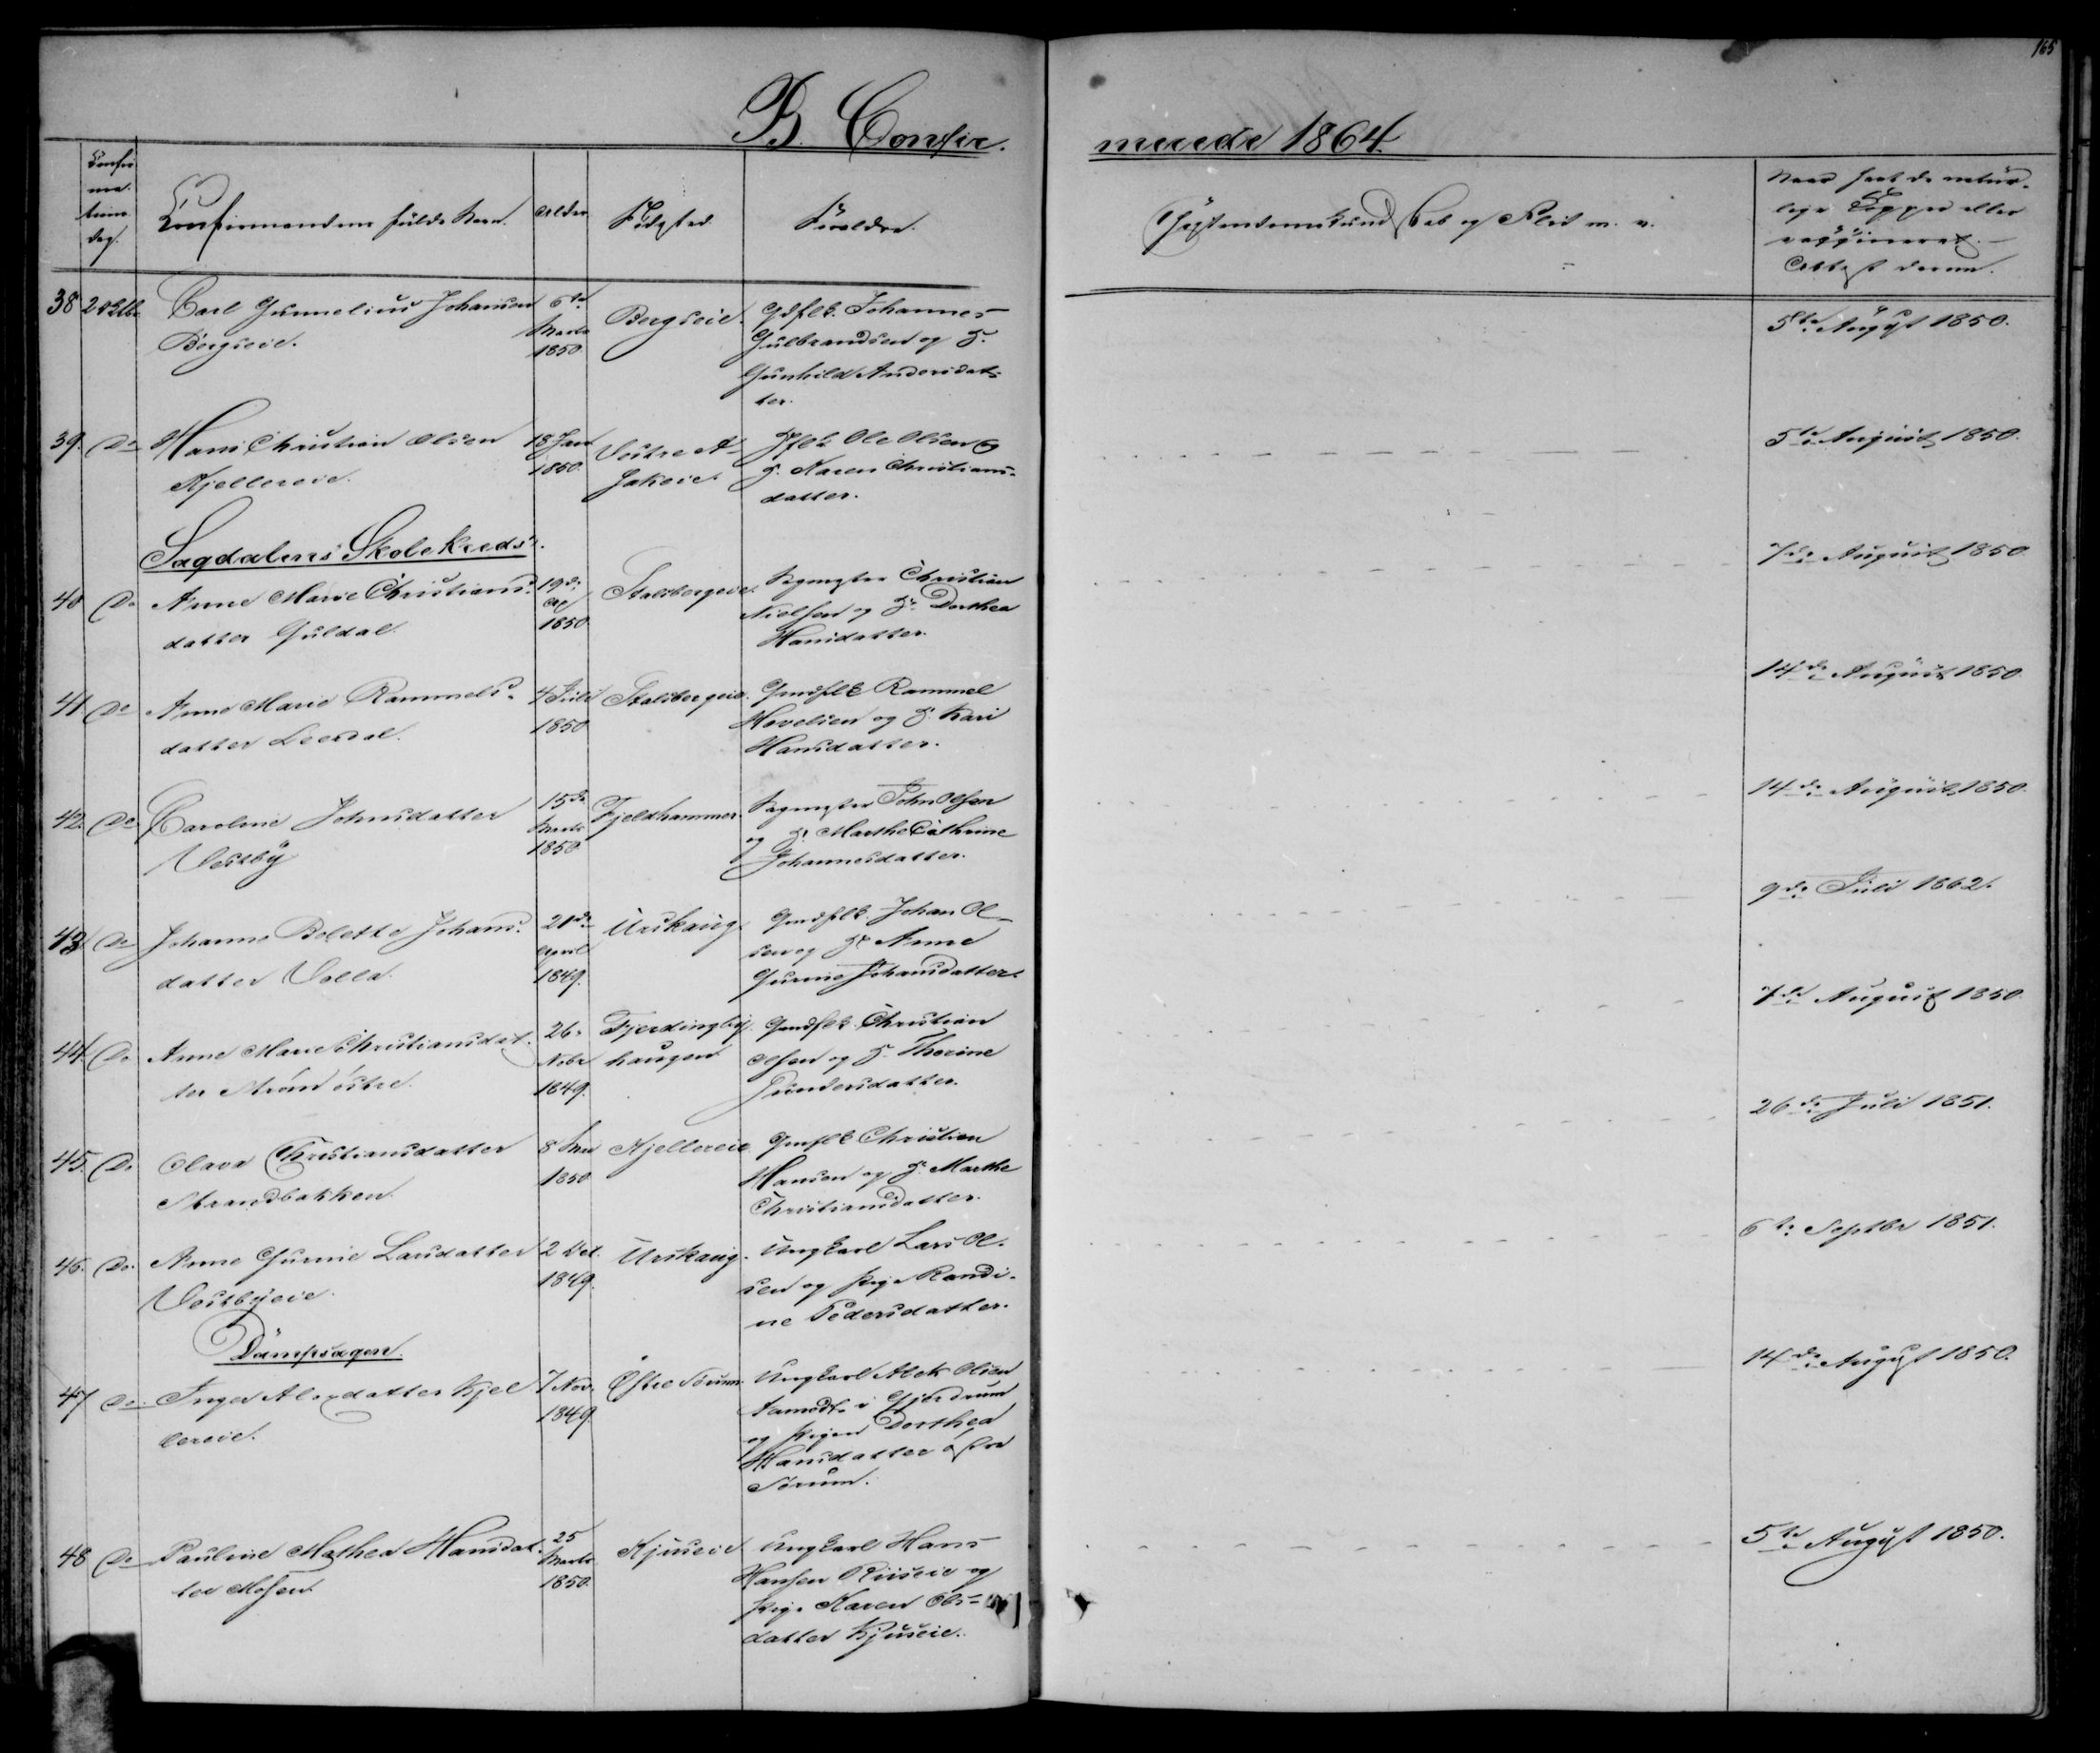 165
B. Confir.
merede 1864.
Confir
ma-
tions
dag.
Confirmandens fulde Navn.
Alder
Fødested
Forældre.
Christendomskundskab og Flid m. v.
Naar havt de natür-
lige Kopper eller
vaccineret.
Attest derom.
38 2 Octbr. Carl Gunnelius Johansen
Bergseie.
6te
Marts
1850
Bergseie.
Gdflk. Johannes
Gulbrandsen og H.
Gunhild Andersdat-
ter.
5te August 1850.
39. Do Hans Christian Olsen
Kjellereie.
18 Jan
1850
Vestre A
Jakeie.
Ole Olsen og
H. Karen Christians-
datter.
5te August 1850.
Sagdalens Skolekreds.
40 Do Anne Marie Christians-
datter Guldal.
19de
Ap
1850
Stalsbergeie.
Sagmester Christian
Nielsen og H. Dorthea
Hansdatter.
7de August 1850
41 Do Anne Marie Rammels-
datter Leerdal.
4 Juli
1850
Stalsbergeie.
Gmdflk Rammel
Havelsen og H. Kari
Hansdatter.
14de August 1850.
42. Do Caroline Johnsdatter
Vestby
15de
Marts
1850
Fjeldhammer.
Sagmester John Olsen
og H. Marthe Cathrine
Johannesdatter.
14de August 1850.
43 Do Johanne Bolette Johans-
datter Volla.
20de
April
1849.
Urskaug.
Gmdflk Johan Ol-
sen og H. Anne
Gurine Johansdatter.
9de Juli 1862.
44 Do Anne Marie Christiansdat-
ter Strøm østre.
26.
Nobr
1849.
Fjerdingby
haugen
Gmdflk Christian
Olsen og H. Thorine
Gundersdatter.
7de August 1850.
45. Do Olava Christiansdatter
Strandbakken.
8 Mar
1850
Kjellereie
Gmflk Christian
Hansen og H. Marthe
Christiansdatter.
26de Juli 1851.
46. Do. Anne Gurine Larsdatter
Vestbyeie.
2 Oct.
1849.
Urskaug.
Ungkarl Lars Ol-
sen og Pige Randi-
ne Pedersdatter.
6te Septbr 1851.
Dampsagen.
47 Do. Inger Alexdatter Kjel
lereie.
7 Nov.
1849.
Østre Sørum
Ungkarl Alek Olsen
Aamodt i Gjerdrum
og Pigen Dorthea
Hansdatter østre
Sørum.
14de August 1850.
48 Do Pauline Mathea Hansdat-
ter Mosen.
25
Marts
1850.
Kjuseie
Ungkarl Hans
Hansen Riiseie og
Pige Karen Ols-
datter Kjuseie.
5te August 1850.